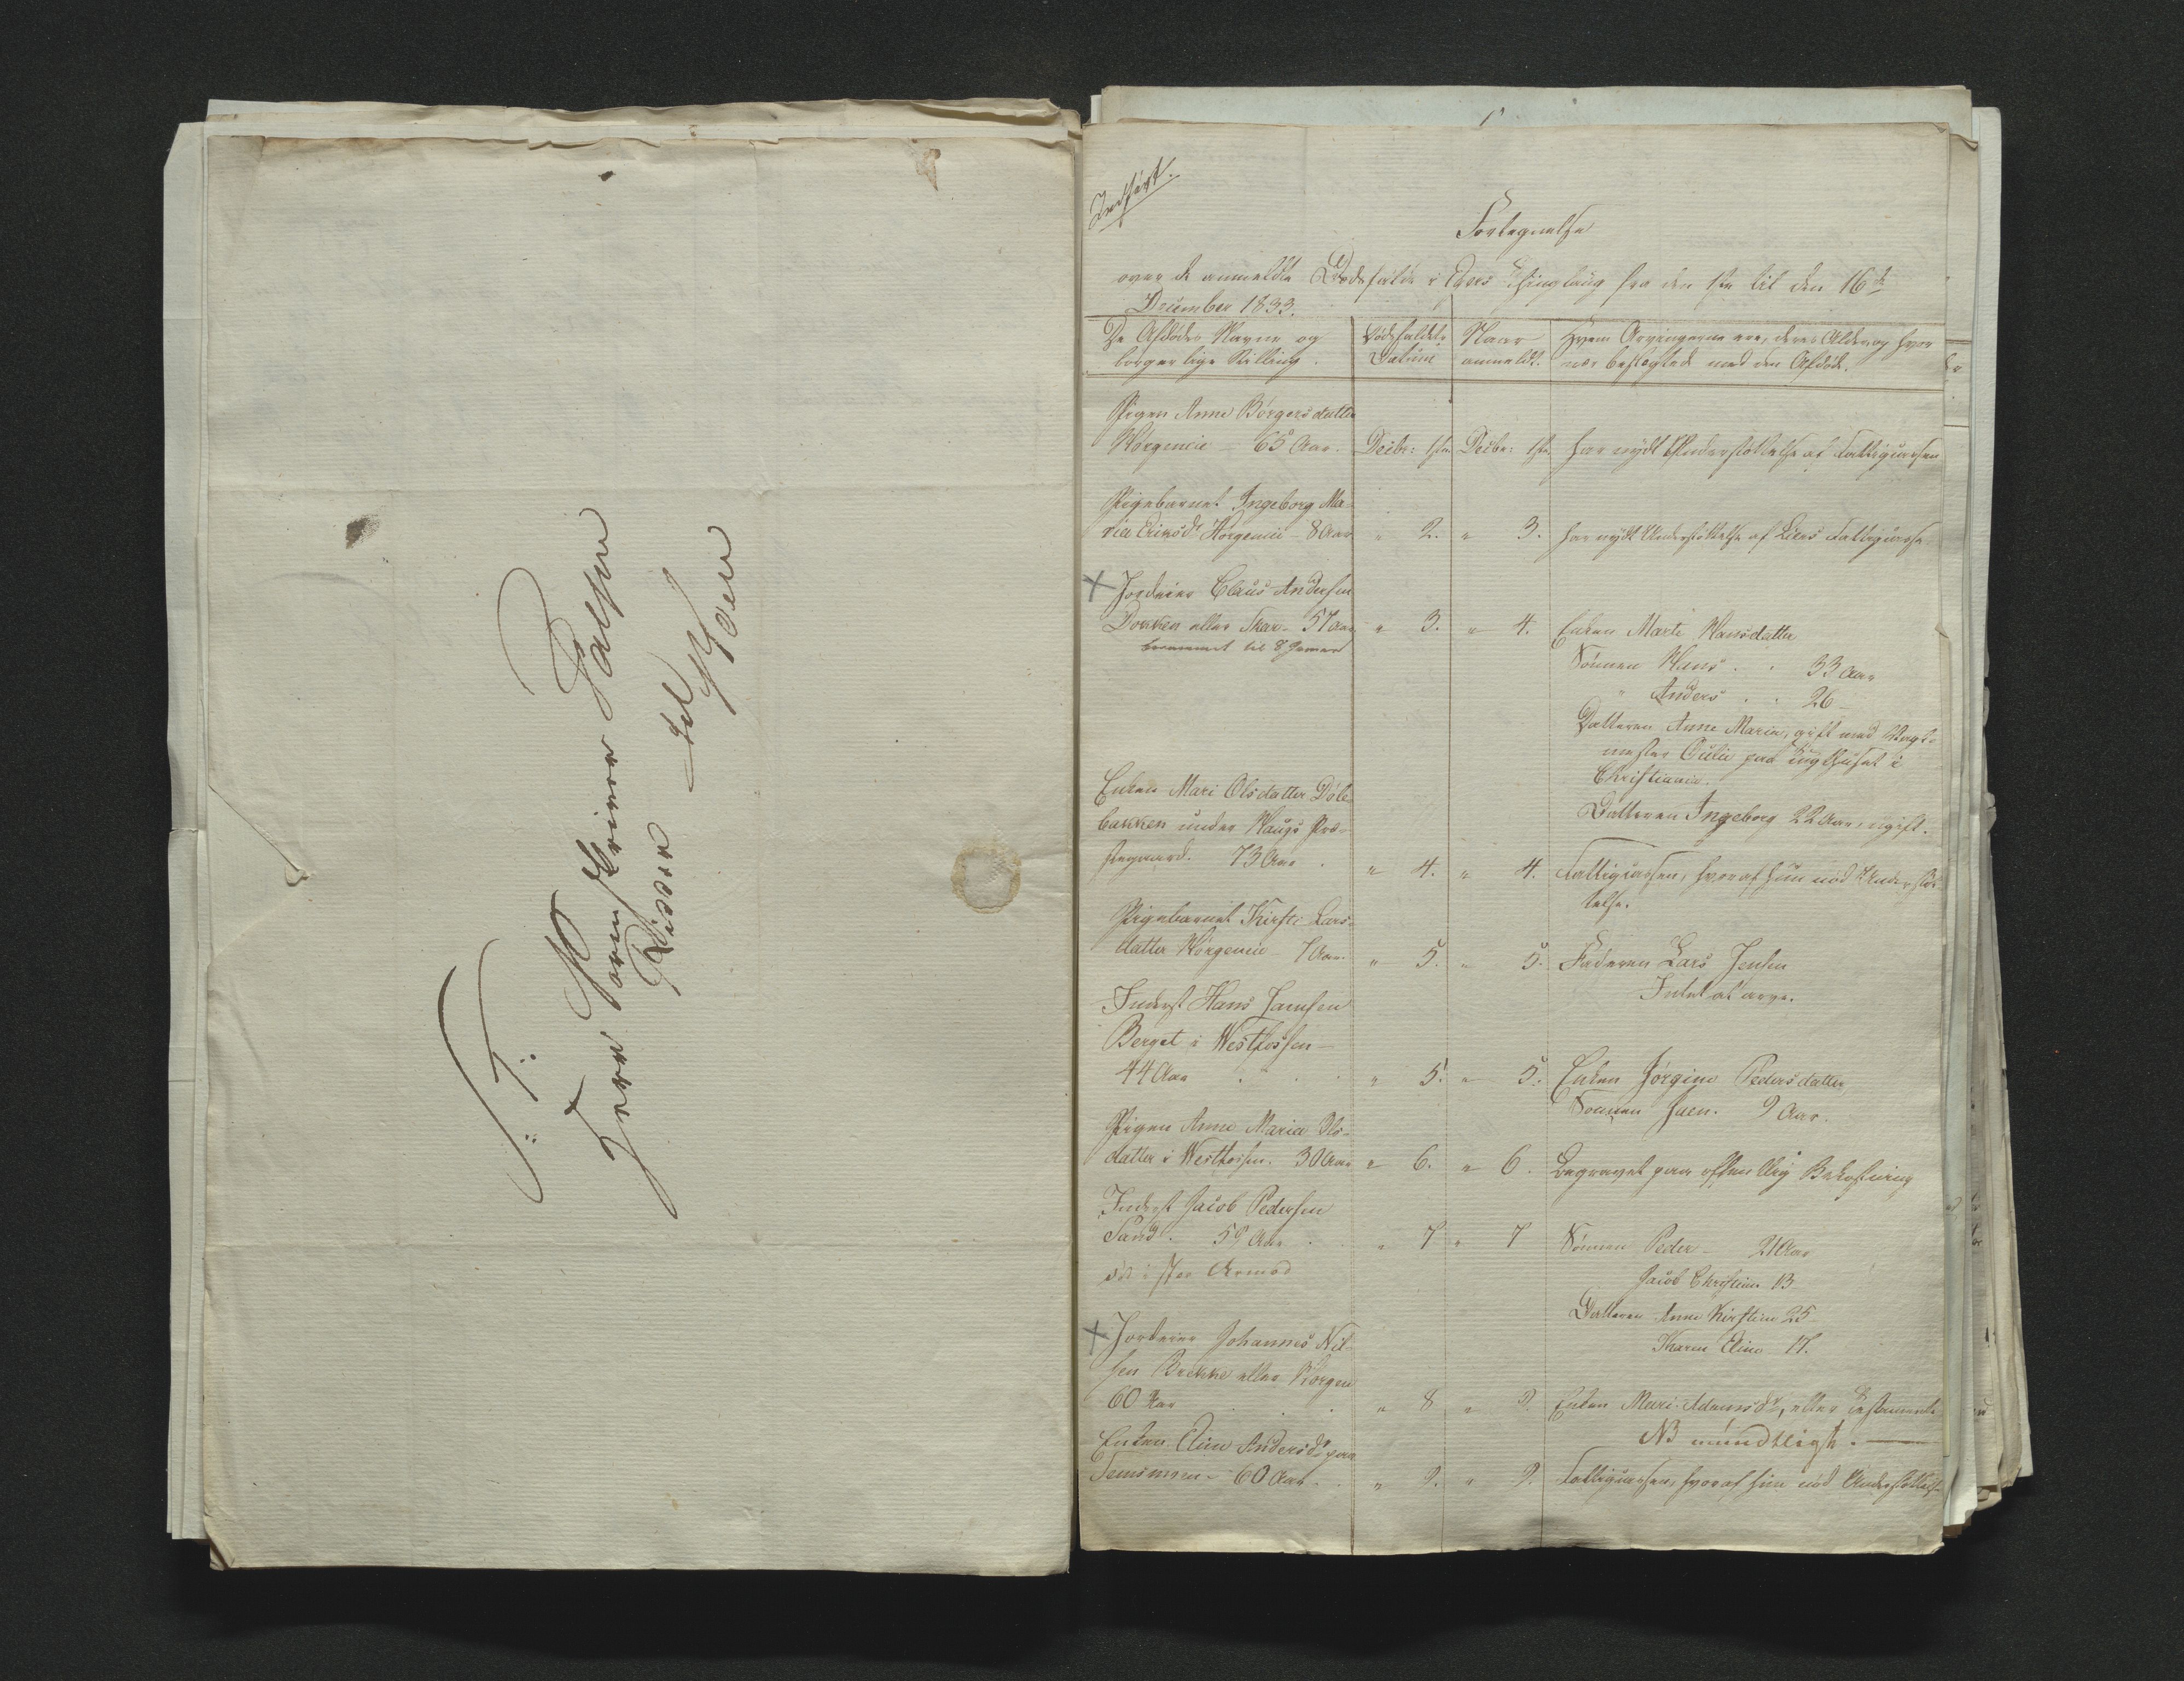 T: T:
Herr Sorenskriver
til
Indført.
Fortegnelse
over de anmeldte Dødsfalde i Egers Thinglaug fra den 1ste til den 16de
December 1833.
De Afdødes Navne og
borgerlige Stilling.
Dødsfaldets
Datum
Naar
anmeldt.
Hvem Arvingerne ere, deres Alder og hvor
nær beslægtede med den Afdøde.
Pigen Anne Børgersdatter
Horgeneie - 65 Aar. Decbr: 1ste Decbr: 1ste har nydt Understøttelse af Fattigcassen
Pigebarnet Ingeborg Ma-
ria Ericsdr Horgeneie - 8 Aar " 2. " 3. har nydt Understøttelse af Liers Fattigcasse.
+ Jordeier Claus Andersen
Dokken eller Skar - 57 Aar " 3. " 4. Enken Marte Hansdatter
til 8 Januar
Sønnen Hans . . 33 Aar
" Anders . . 26 -
Datteren Anne Maria, gift med Vagt-
mester paa Tugthuset i
Christiania.
Datteren Ingeborg 22 Aar, ugift.
Enken Mari Olsdatter Døle-
bakken under Haugs Præ-
stegaard. 73 Aar . " 4. " 4. Fattigcassen, hvoraf hun nød Understøt-
telse.
Pigebarnet Kirsti Lars-
datter Horgeneie - 1 Aar. " 5. " 5. Faderen Lars Jensen
Intet at arve.
Inderst Hans Jacobsen
Berget i Westfossen -
44 Aar . . . " 5. " 5. Enken Jørgine Pedersdatter
Sønnen Jacn. 9 Aar.
Pigen Anne Maria Ols-
datter i Westfossen. 30 Aar " 6. " 6. Begravet paa offentlig Bekostning
Inderst Jacob Pedersen
Sand. 59 Aar . . " 7 " 7 Sønnen Peder - 21 Aar
død i stor Armod
Jacob Christian 13 -
Datteren Anne Kirstine 25 -
Karen Eline 17.
+ Jordeier Johannes Nil-
sen Brekke eller Horgen
60 Aar . . " 8 " 8. Enken Mari Adamsdr, efter Testamente
NB mundtligt. -
Enken Eline Andersdr paa
60 Aar. . " 9. " 9. Fattigcassen, hvoraf hun nød Understøttelse